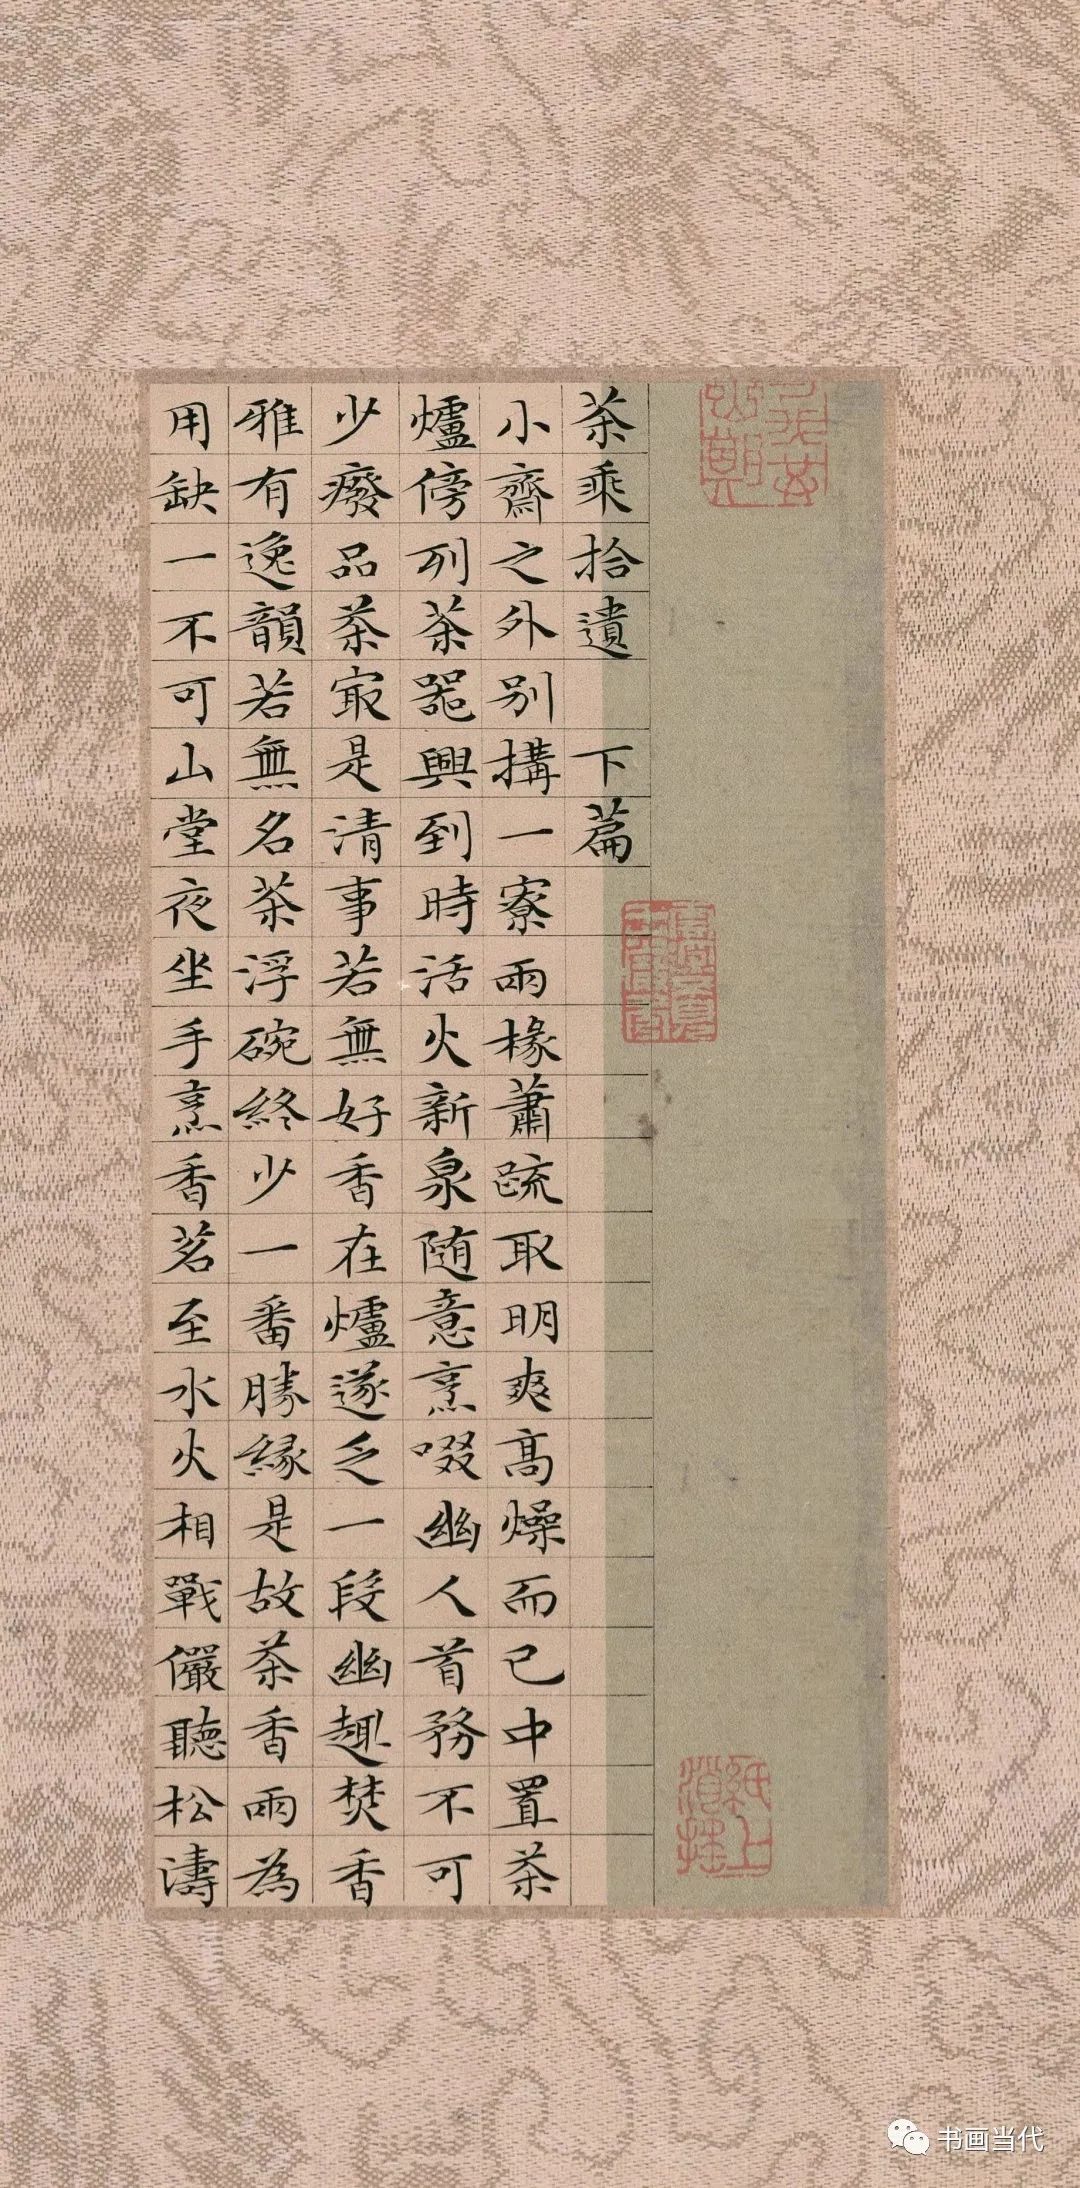 茶乘拾遺 下篇
小齋之外別搆一寮兩椽蕭疏取明爽高燥而已中置茶
爐傍列茶器興到時活火新泉随意烹啜幽人首務不可
少癈品茶㝡是清事若無好香在爐遂乏一段幽趣焚香
雅有逸韻若無名茶浮碗終少一番勝緣是故茶香兩為
用缺一不可山堂夜坐手烹香茗至水火相戰儼聽松濤
书画当代